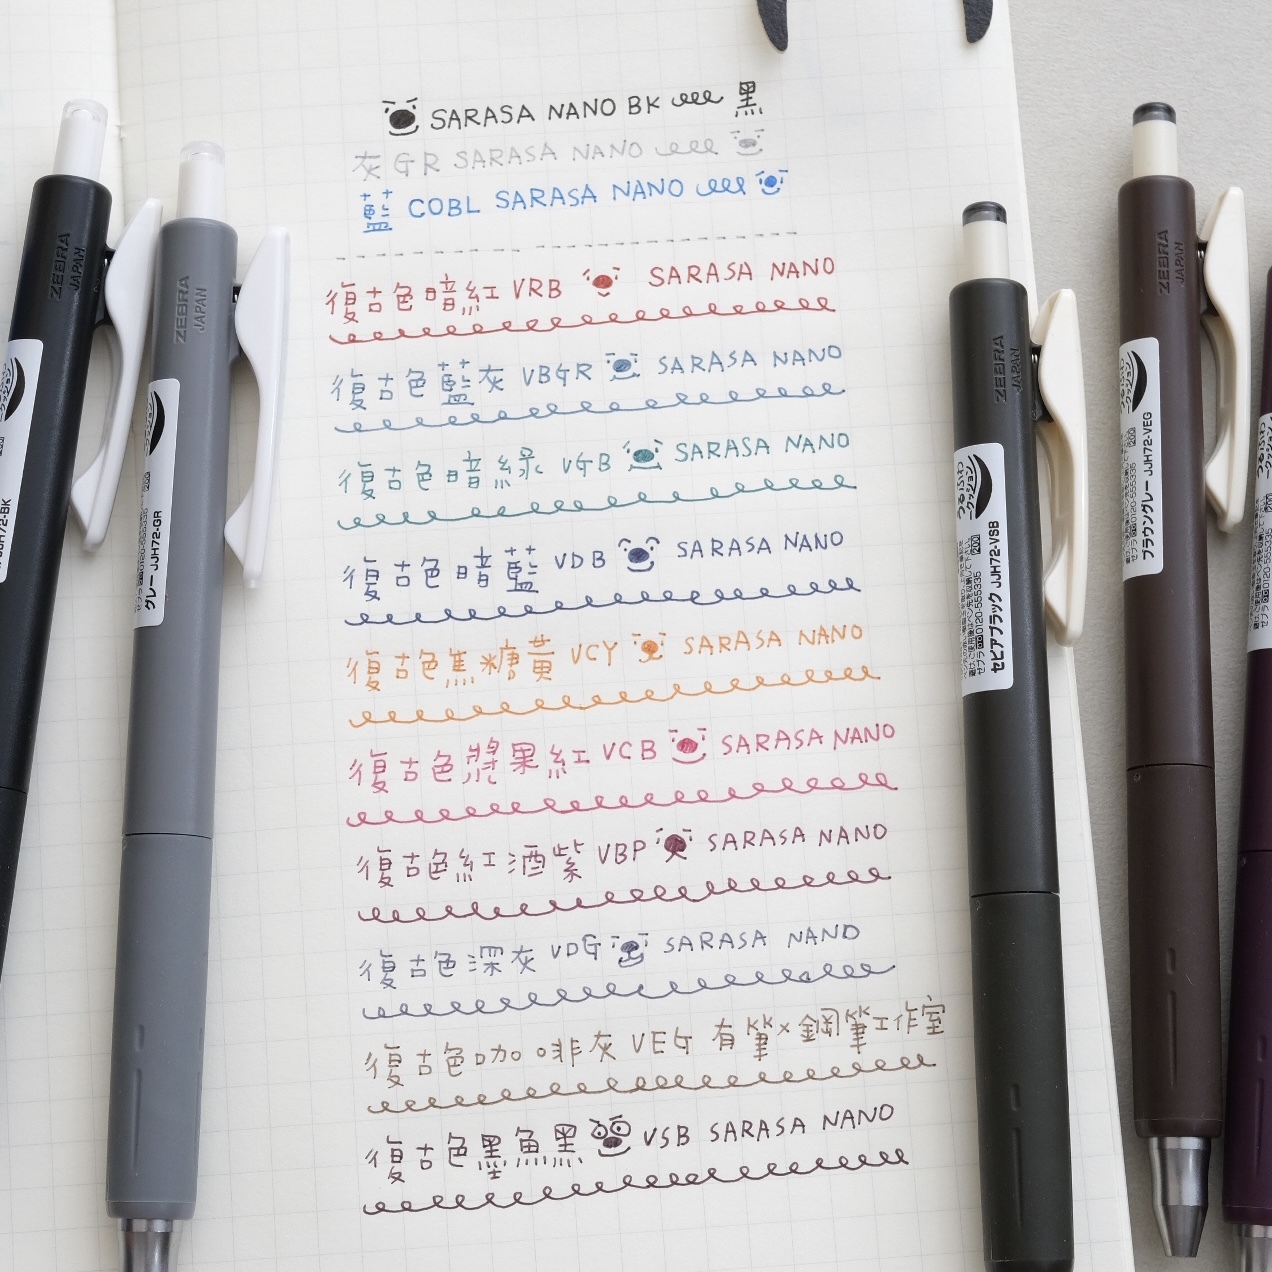 SARASA NANO BK 黑
灰 GR SARASA NANO
藍 COBL SARASA NANO
復古色暗紅 VRB SARASA NANO
復古色藍灰 VBGR SARASA NANO
復古色暗綠 VGB SARASA NANO
復古色暗藍 VDB SARASA NANO
復古色焦糖黃 VCY SARASA NANO
復古色漿果紅 VCB SARASA NANO
復古色紅酒紫 VBP SARASA NANO
復古色深灰 VDG SARASA NANO
復古色咖啡灰 VEG 有筆×鋼筆工作室
復古色墨魚黑 VSB SARASA NANO
ZEBRA
JAPAN
JJH72-BK
ZEBRA
JAPAN
グレー JJH72-GR
ZEBRA
JAPAN
うるふわ
クッション
ゼブラ 0120-555335
セピアブラック JJH72-VSB
ZEBRA
JAPAN
クッション
ゼブラ 0120-555335
ブラウングレー JJH72-VEG